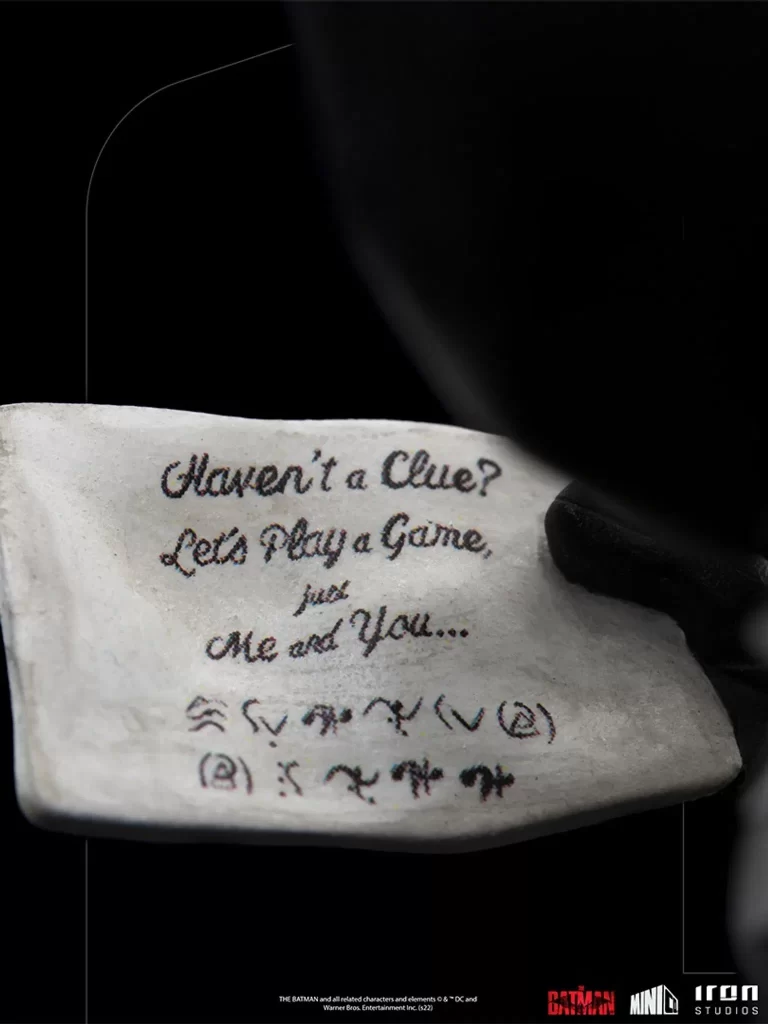 Haven't a Clue?
Let's Play a Game,
just
Me and You...
THE BATMAN and all related characters and elements © & ™ DC and
Warner Bros. Entertainment Inc. (s22)
THE BATMAN
MINICO
IRON
STUDIOS